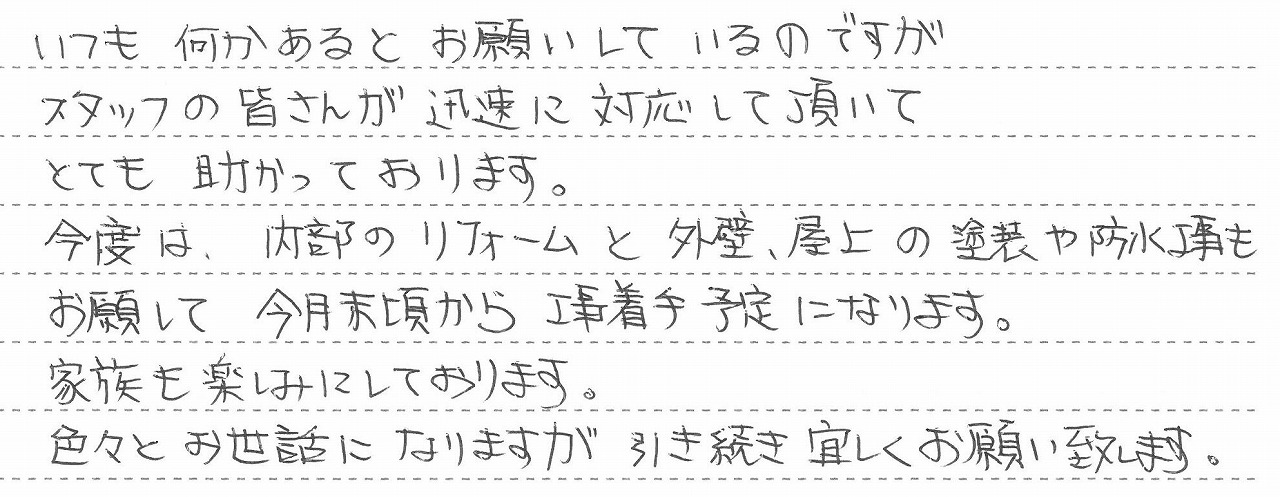 いつも 何かあると お願いして いるのですが
スタッフの 皆さんが 迅速に 対応して頂いて
とても 助かっております。
今度は、内部の リフォームと 外壁、屋上の 塗装や防水工事も
お願して 今月末頃から 工事着手 予定になります。
家族も 楽しみにしております。
色々と お世話に なりますが 引き続き 宜しくお願い致します。